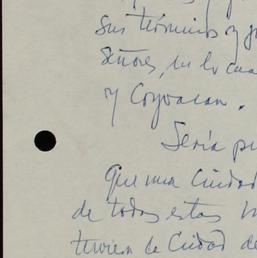 sus términos y
Señores, en lo
y Coyoacan.
Sería
Que una Ciudad
de todas estas
tuviera la Ciudad de